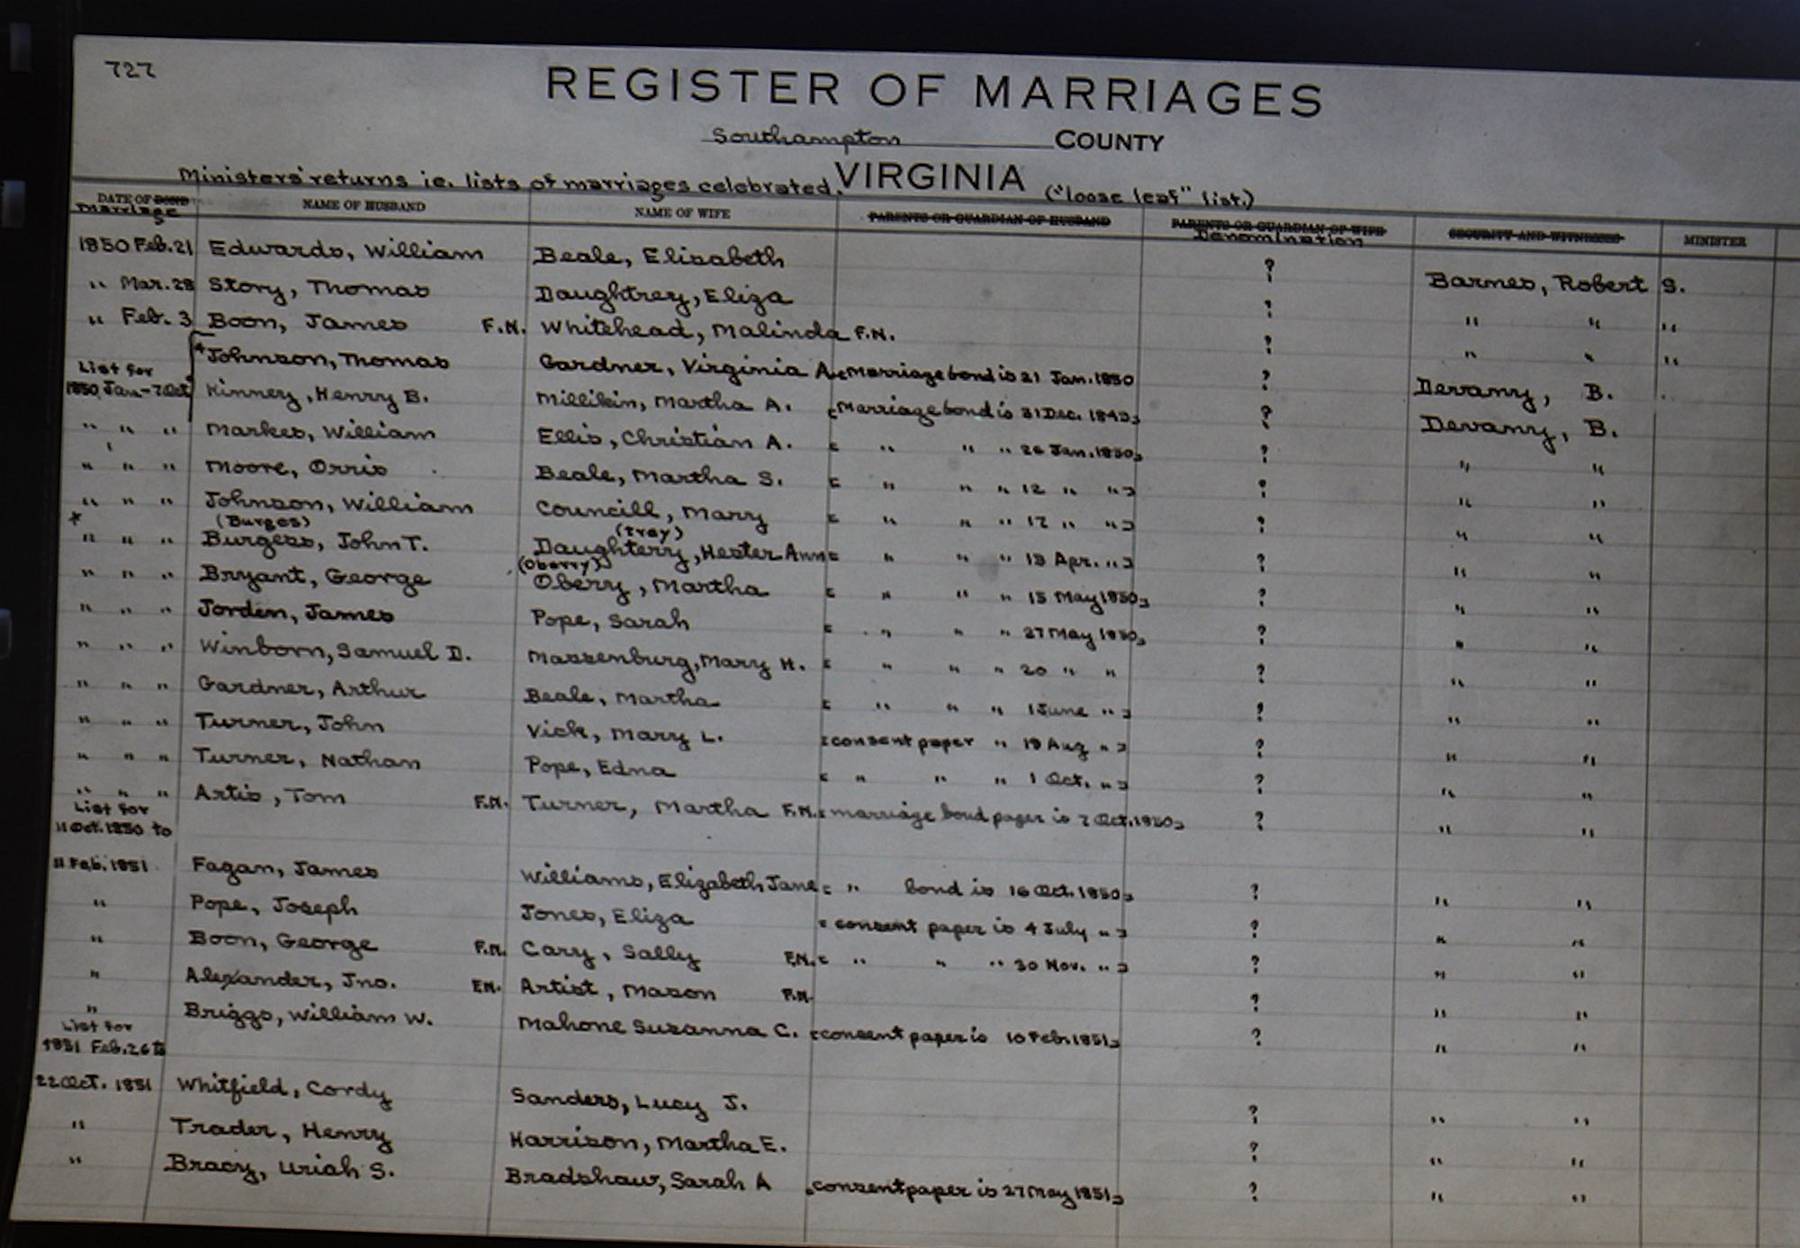 727
REGISTER OF MARRIAGES
Southampton COUNTY
VIRGINIA
Ministers' returns i.e. lists of marriages celebrated. ("loose leaf" list.)
DATE OF BOND NAME OF HUSBAND NAME OF WIFE PARENTS OR GUARDIAN OF HUSBAND PARENTS OR GUARDIAN OF WIFE SECURITY AND WITNESSES MINISTER
marriage Denomination
1850 Feb. 21 Edwards, William Beale, Elisabeth ? Barnes, Robert S.
" Mar. 28 Story, Thomas Daughtrey, Eliza ? " " "
" Feb. 3 Boon, James F.N. Whitehead, Malinda F.N. ? " " "
Johnson, Thomas Gardner, Virginia A. [Marriage bond is 21 Jan. 1850 ? Devany, B.
List for
1850 Jan - 7 Oct Kinney, Henry B. Millikin, Martha A. [Marriage bond is 31 Dec. 1849] ? Devany, B.
" " " Markes, William Ellis, Christian A. [ " " " 26 Jan. 1850] ? " "
" " " Moore, Orris Beale, Martha S. [ " " " 12 " " ] ? " "
" " " Johnson, William Councill, Mary [ " " " 17 " " ] ? " "
* (Burges) (trey)
" " " Burgess, John T. Daughterry, Hester Ann [ " " " 18 Apr. " ] ? " "
(Oberry)
" " " Bryant, George Obery, Martha [ " " " 15 May 1850] ? " "
" " " Jorden, James Pope, Sarah [ " " " 27 May 1850] ? " "
" " " Winborn, Samuel D. Massenburg, Mary H. [ " " " 20 " " ? " "
" " " Gardner, Arthur Beale, Martha [ " " " 1 June " ] ? " "
" " " Turner, John Vick, Mary L. [consent paper " 19 Aug " ] ? " "
" " " Turner, Nathan Pope, Edna [ " " " 1 Oct. " ] ? " "
" " " Artis, Tom F.N. Turner, Martha F.N. [marriage bond paper is 7 Oct. 1850] ? " "
List for
11 Oct. 1850 to
11 Feb. 1851 Fagan, James Williams, Elizabeth Jane [ " bond is 16 Oct. 1850] ? " "
" Pope, Joseph Jones, Eliza [consent paper is 4 July " ] ? " "
" Boon, George F.N. Cary, Sally F.N. [ " " " 30 Nov. " ] ? " "
" Alexander, Jno. F.N. Artist, Mason F.N. ? " "
" Briggs, William W. Mahone Susanna C. [consent paper is 10 Feb. 1851] ? " "
List for
1851 Feb. 26 to
22 Oct. 1851 Whitfield, Cordy Sanders, Lucy J. ? " "
" Trader, Henry Harrison, Martha E. ? " "
" Bracy, Uriah S. Bradshaw, Sarah A [consent paper is 27 May 1851] ? " "